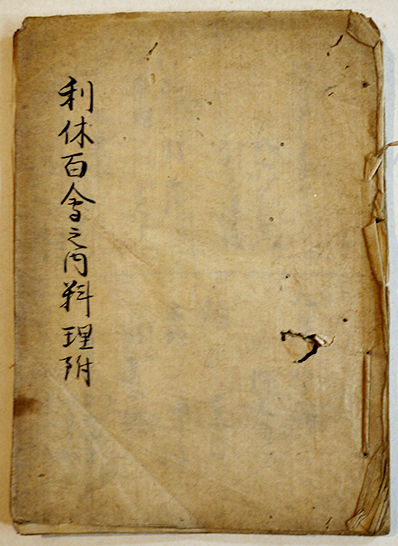 利休百會之内料理附